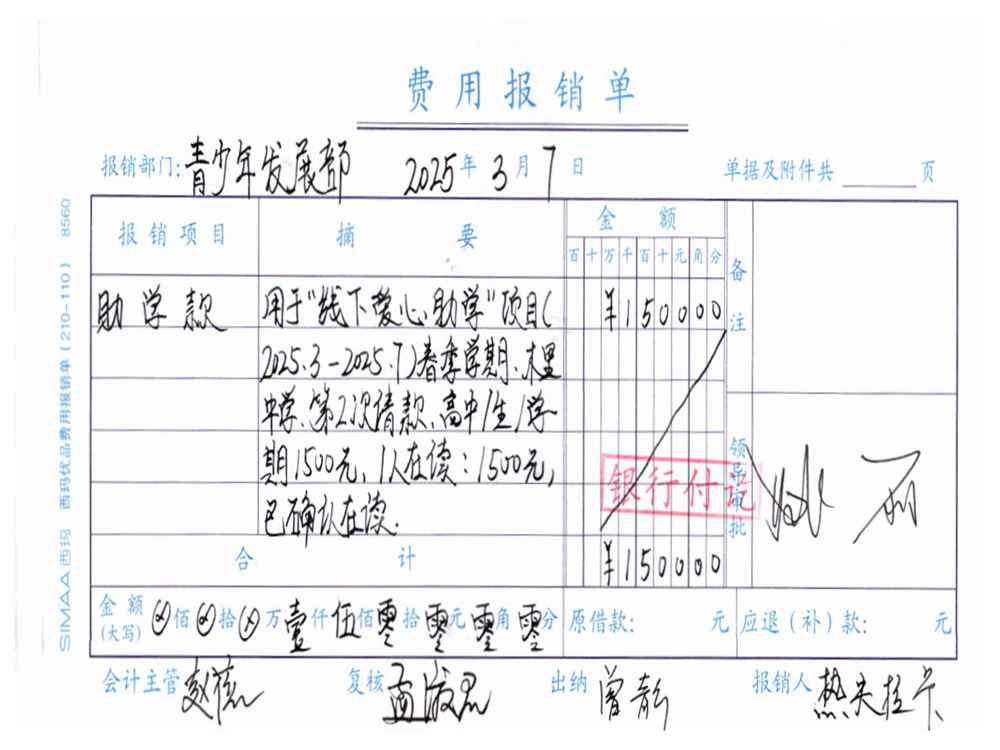 费用报销单
报销部门:青少年发展部 2025年3月7日 单据及附件共 页
报销项目 摘要 金额 备注
百十万千百十元角分
助学款 用于"线下爱心助学"项目( ¥150000
2025.3-2025.7)春季学期、木里
中学、第2次请款、高中/生/学
期1500元,1人在读:1500元,
已确认在读.
银行付讫
领导审批
合计 ¥150000
金额(大写) ⊗佰⊗拾⊗万壹仟伍佰零拾零元零角零分 原借款: 元 应退(补)款: 元
会计主管 复核 出纳 曾 报销人 热夫拉卡
SIMAA西玛 西玛优品费用报销单(210-110) 8560